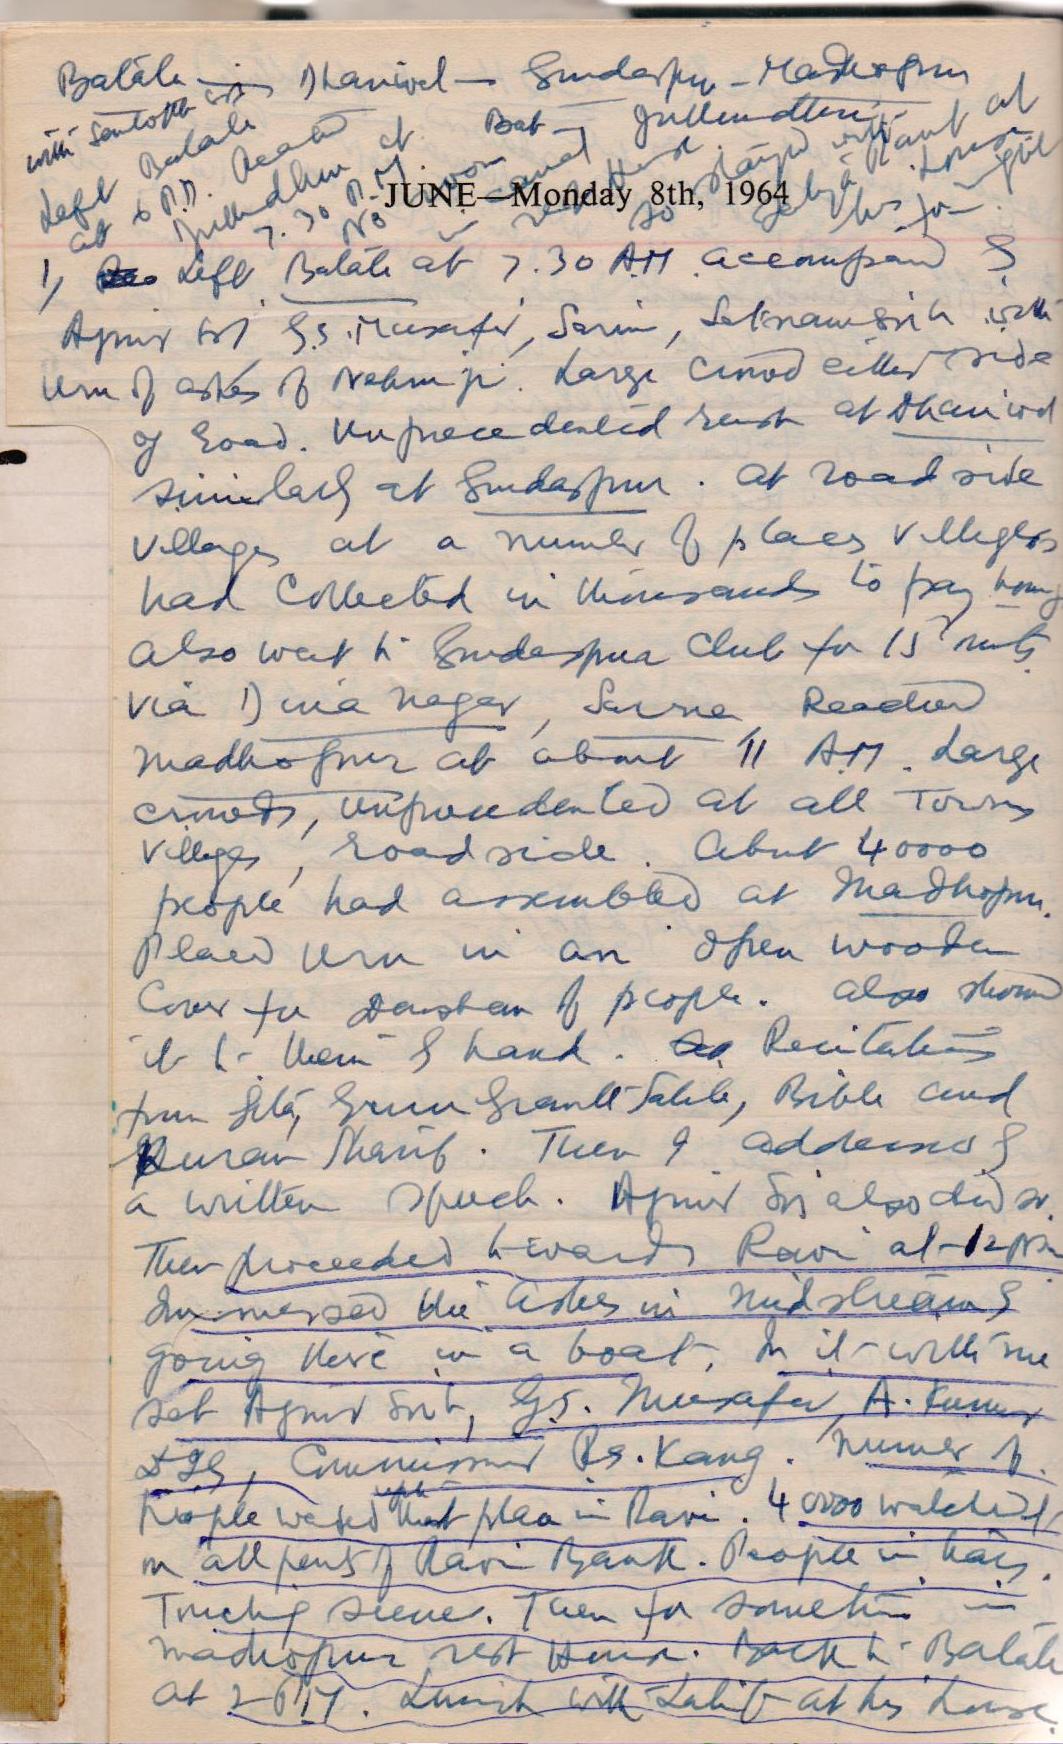 Batala — Dhariwal — Gurdaspur — Madhopur
Bat — Jullundur
with Santokh Sin
Left Batala
at 6 P.M. Reached
Jullundhur at
7.30 P.M.
No room
in canal
rest House
so stayed with
at
house
this for night
JUNE—Monday 8th, 1964
1, Left Batala at 7.30 AM accompanied by
Ajmir Sin G.S. Musafir, Sarin, Satnam Sinh with
Urn of ashes of Nehru ji. Large crowd either side
of road. Unprecedented rush at Dhariwal
similarly at Gurdaspur. At road side
villages at a numer of places villagers
had collected in thousands to pay homage
also went to Gurdaspur Club for 15 mts
via Dina nagar, Sarna, Reached
Madhopur at about 11 A.M. Large
crowds, unprecedented at all Towns
Villages, roadside. About 40000
people had assembled at Madhopur.
Placed Urn in an open wooden
Cover for Darshan of people. also showed
it to them by hand. Recitations
from Gita, Guru Granth Sahib, Bible and
Kuran Sharif. Then I addressed by
a written speech. Ajmir Sin also did so.
Then proceeded towards Ravi at 12 Noon
Immersed the ashes in midstream by
going there in a boat. In it with me
sat Ajmir Sinh, G.S. Musafir, A. Kumar
DIG, Commissioner P.S. Kang. Numer of
People waded upto that place in Ravi. 40000 watched
on all parts of Ravi Bank. People in tears.
Touching scene. Then for sometime in
Madhopur rest House. Back to Batala
at 2 PM. Lunch with at his house.